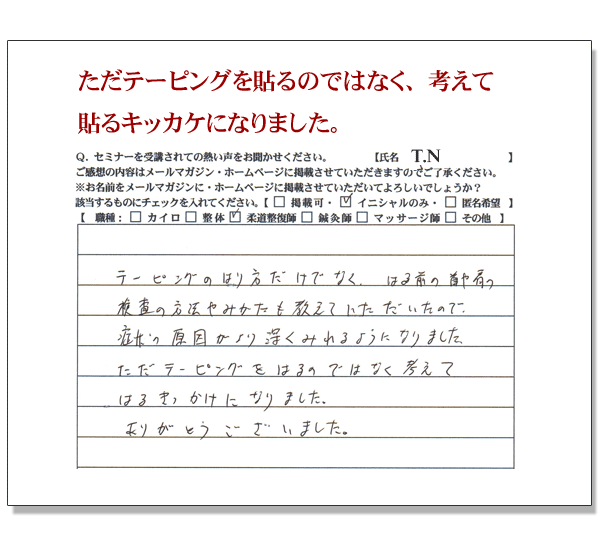 ただテーピングを貼るのではなく、考えて
貼るキッカケになりました。
Q. セミナーを受講されての熱い声をお聞かせください。 【氏名 T.N 】
ご感想の内容はメールマガジン・ホームページに掲載させていただきますのでご了承ください。
※お名前をメールマガジンに・ホームページに掲載させていただいてよろしいでしょうか?
該当するものにチェックを入れてください。【 □ 掲載可・ ☑ イニシャルのみ・ □ 匿名希望 】
【 職種: □ カイロ □ 整体 ☑ 柔道整復師 □ 鍼灸師 □ マッサージ師 □ その他 】
テーピングのはり方だけでなく、はる前の
検査の方法やみかたも教えていただいたので、
症状の原因がより深くみれるようになりました。
ただテーピングをはるのではなく考えて
はるきっかけになりました。
ありがとうございました。